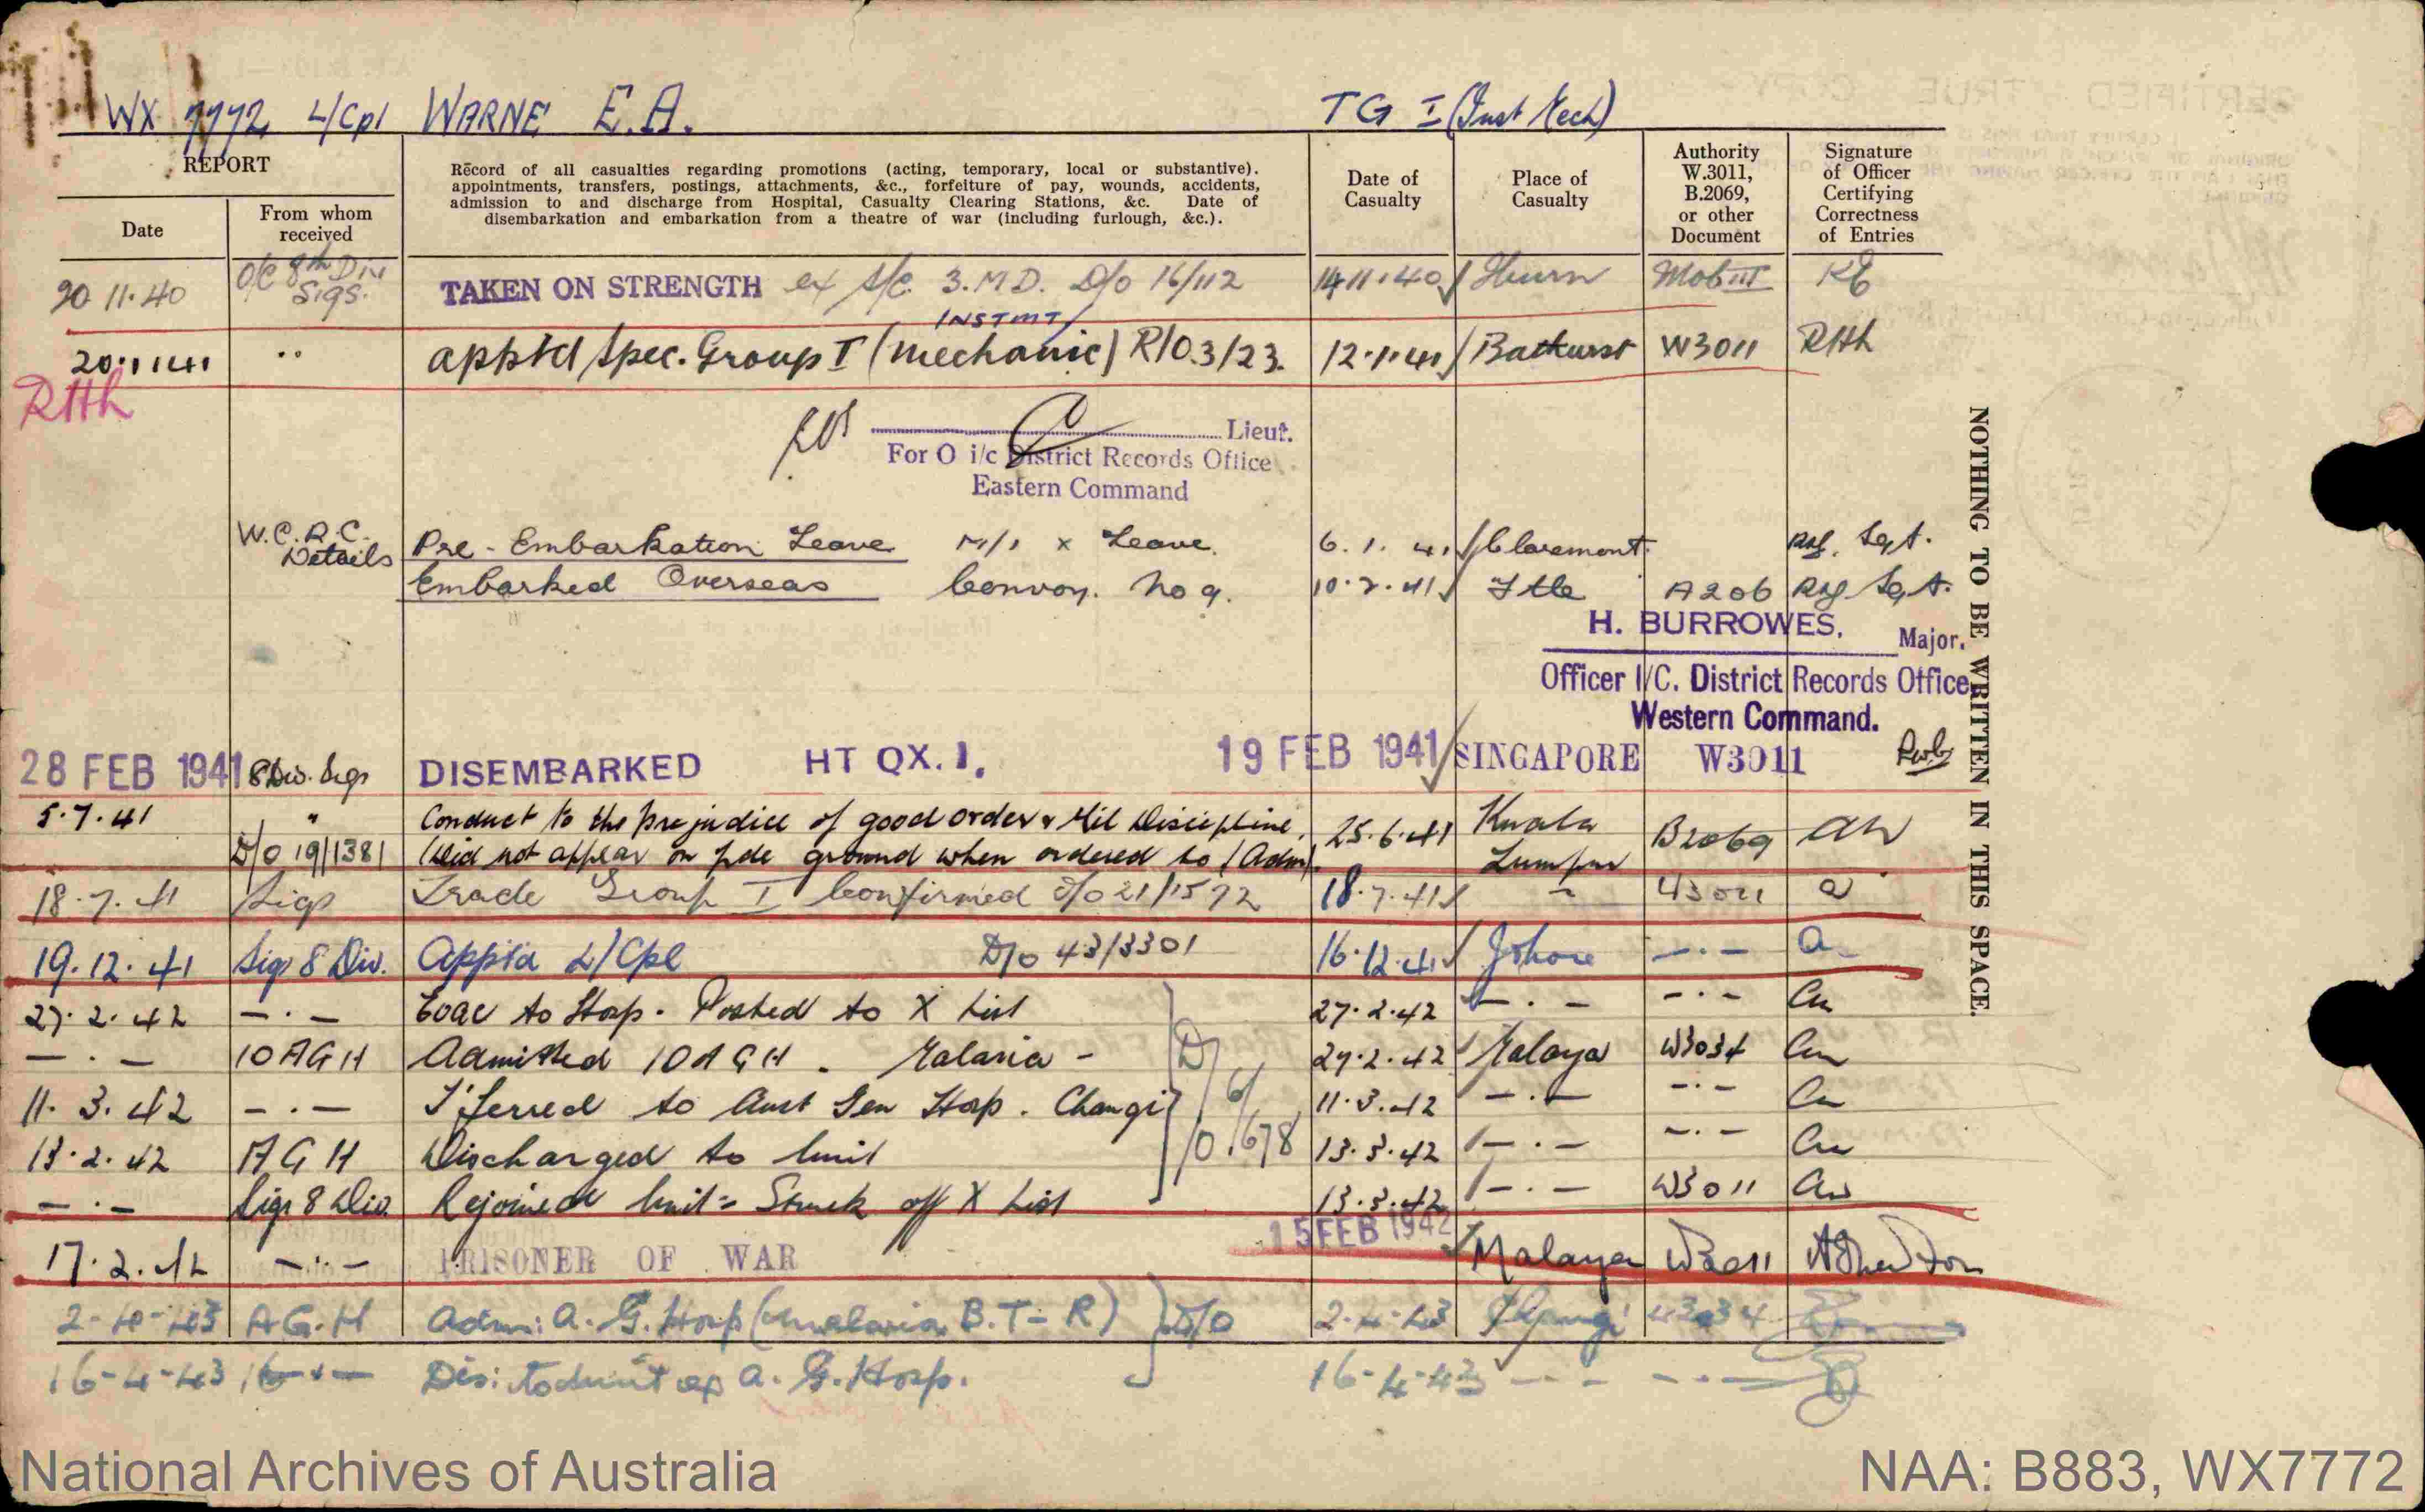 WX 7772 L/Cpl WARNE E.A. TG I (Inst Mech)
REPORT
Date
From whom received
Record of all casualties regarding promotions (acting, temporary, local or substantive).
appointments, transfers, postings, attachments, &c., forfeiture of pay, wounds, accidents,
admission to and discharge from Hospital, Casualty Clearing Stations, &c. Date of
disembarkation and embarkation from a theatre of war (including furlough, &c.).
Date of Casualty
Place of Casualty
Authority W.3011, B.2069, or other Document
Signature of Officer Certifying Correctness of Entries
20 11.40 O/C 8th Div Sigs. TAKEN ON STRENGTH ex S/C. 3.M.D. D/O 16/112 14.11.40 Mob III
INSTMT
20.1.41 " apptd Spec. Group I (Mechanic) R/O.3/23. 12.1.41 Bathurst W3011 RHh
RHh
Lieut.
For O i/c District Records Office
Eastern Command
W.C.R.C. Details Pre-Embarkation Leave M/1 x Leave. 6.1.41 Claremont Sgt.
Embarked Overseas Convoy. No 9. 10.2.41 Ftle A206 Sgt.
H. BURROWES, Major.
Officer I/C. District Records Office,
Western Command.
NOTHING TO BE WRITTEN IN THIS SPACE.
28 FEB 1941 8 Div. Sigs DISEMBARKED HT QX.1. 19 FEB 1941 SINGAPORE W3011
5.7.41 " Conduct to the prejudice of good order & Mil Discipline. 25.6.41 Kuala Lumpur B2069
D/O 19/1381 (Did not appear on pde ground when ordered to (Adm).
18.7.41 Sigs Trade Group I Confirmed D/O 21/1572 18.7.41 W3011
19.12.41 Sigs 8 Div. Apptd L/Cpl D/O 43/3301 16.12.41 Johore -.- 
27.2.42 -.- Evac to Hosp. Posted to X List 27.2.42 -.- -.-
-.- 10 AGH Admitted 10 AGH. Malaria - 27.2.42 Malaya W3034
11.3.42 -.- T'ferred to Aust Gen Hosp. Changi 11.3.42 -.- -.-
D/O 6/1678
13.2.42 AGH Discharged to Unit 13.3.42 -.- -.-
-.- Sigs 8 Div. Rejoined Unit = Struck off X List 13.3.42 -.- W3011
17.2.42 -.- PRISONER OF WAR 15 FEB 1942 Malaya W3011
2-4-43 A.G.H Adm: A.G.Hosp (Malaria B.T-R) D/O 2-4-43 Changi W3034
16-4-43 -.- Dis: to Unit ex A.G.Hosp. 16-4-43 -.- -.-
National Archives of Australia
NAA: B883, WX7772